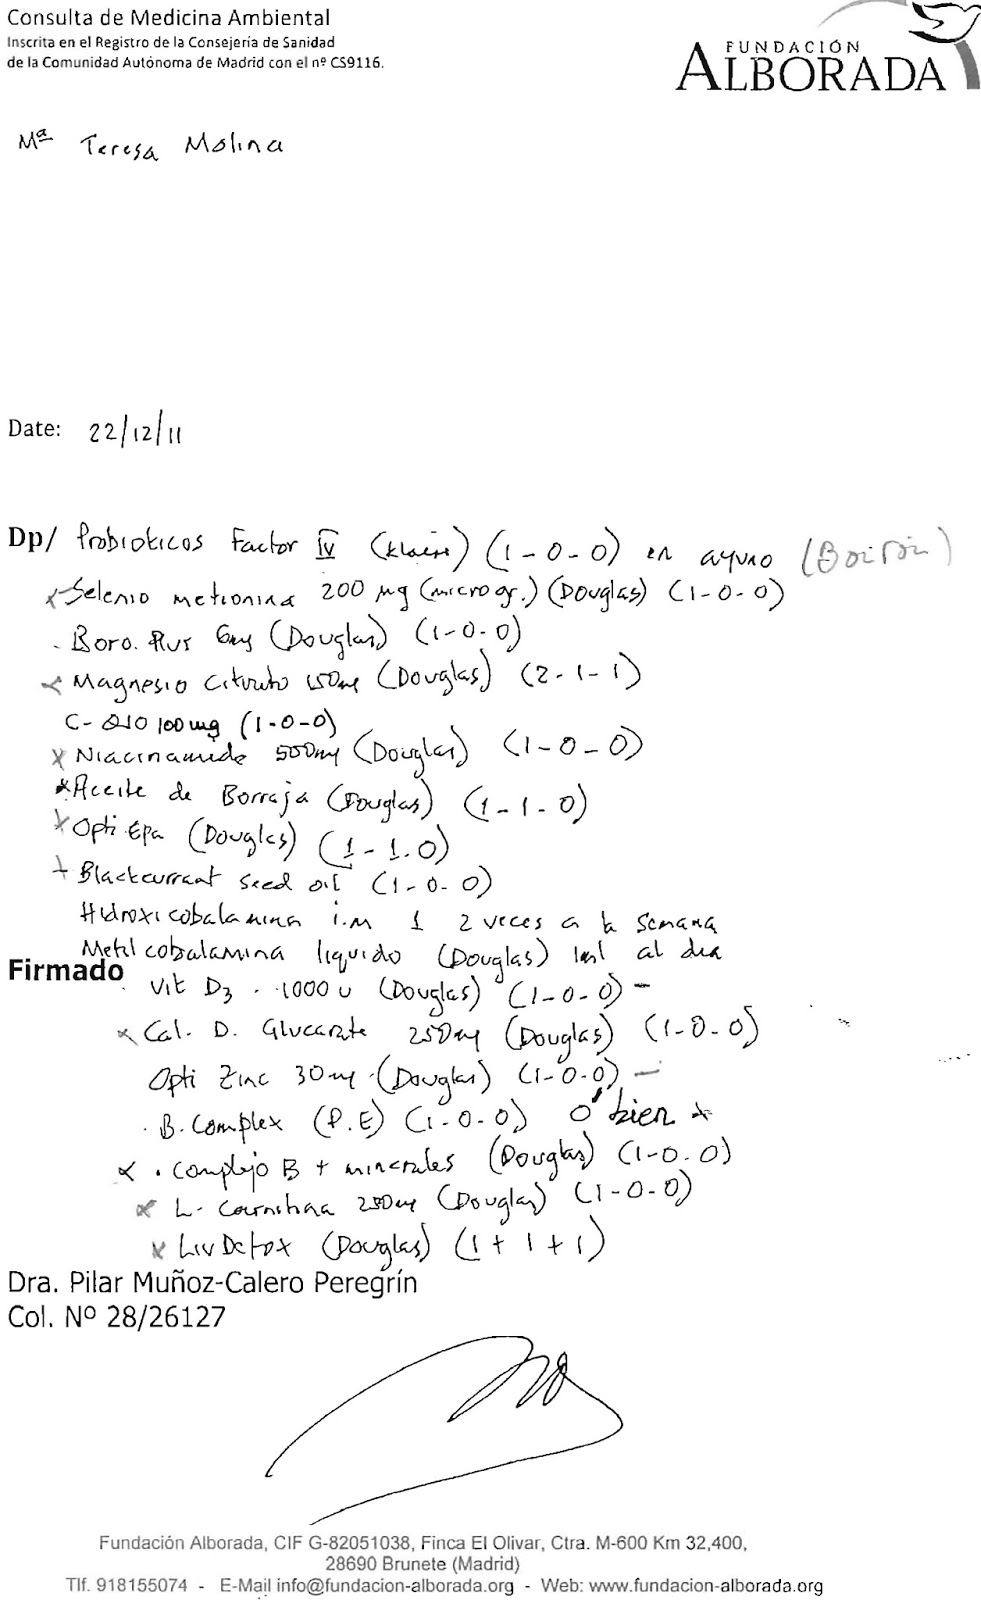 Consulta de Medicina Ambiental
Inscrita en el Registro de la Consejería de Sanidad
de la Comunidad Autónoma de Madrid con el nº CS9116.
FUNDACIÓN
ALBORADA
Mª Teresa Molina
Date: 22/12/11
Dp/ Probioticos Factor IV (Klaire) (1-0-0) en ayuno (Boiron)
x Selenio metionina 200 µg (microgr.) (Douglas) (1-0-0)
. Boro. Plus 6mg (Douglas) (1-0-0)
x Magnesio Citrato 150mg (Douglas) (2-1-1)
C-Q10 100mg (1-0-0)
x Niacinamide 500mg (Douglas) (1-0-0)
x Aceite de Borraja (Douglas) (1-1-0)
x Opti Epa (Douglas) (1-1.0)
+ Blackcurrant seed oil (1-0-0)
Hidroxicobalamina i.m 1 2 veces a la semana
Metilcobalamina liquido (Douglas) 1ml al dia
Firmado
. Vit D3 . 1000 U (Douglas) (1-0-0) -
x Cal. D. Glucarate 250mg (Douglas) (1-0-0)
Opti Zinc 30mg (Douglas) (1-0-0) -
. B. Complex (P.E) (1-0-0) ó bien x
x . Complejo B + minerales (Douglas) (1-0.0)
x L-Carnitina 250mg (Douglas) (1-0-0)
x Liv Detox (Douglas) (1+1+1)
Dra. Pilar Muñoz-Calero Peregrín
Col. Nº 28/26127
Fundación Alborada, CIF G-82051038, Finca El Olivar, Ctra. M-600 Km 32,400,
28690 Brunete (Madrid)
Tlf. 918155074 - E-Mail info@fundacion-alborada.org - Web: www.fundacion-alborada.org